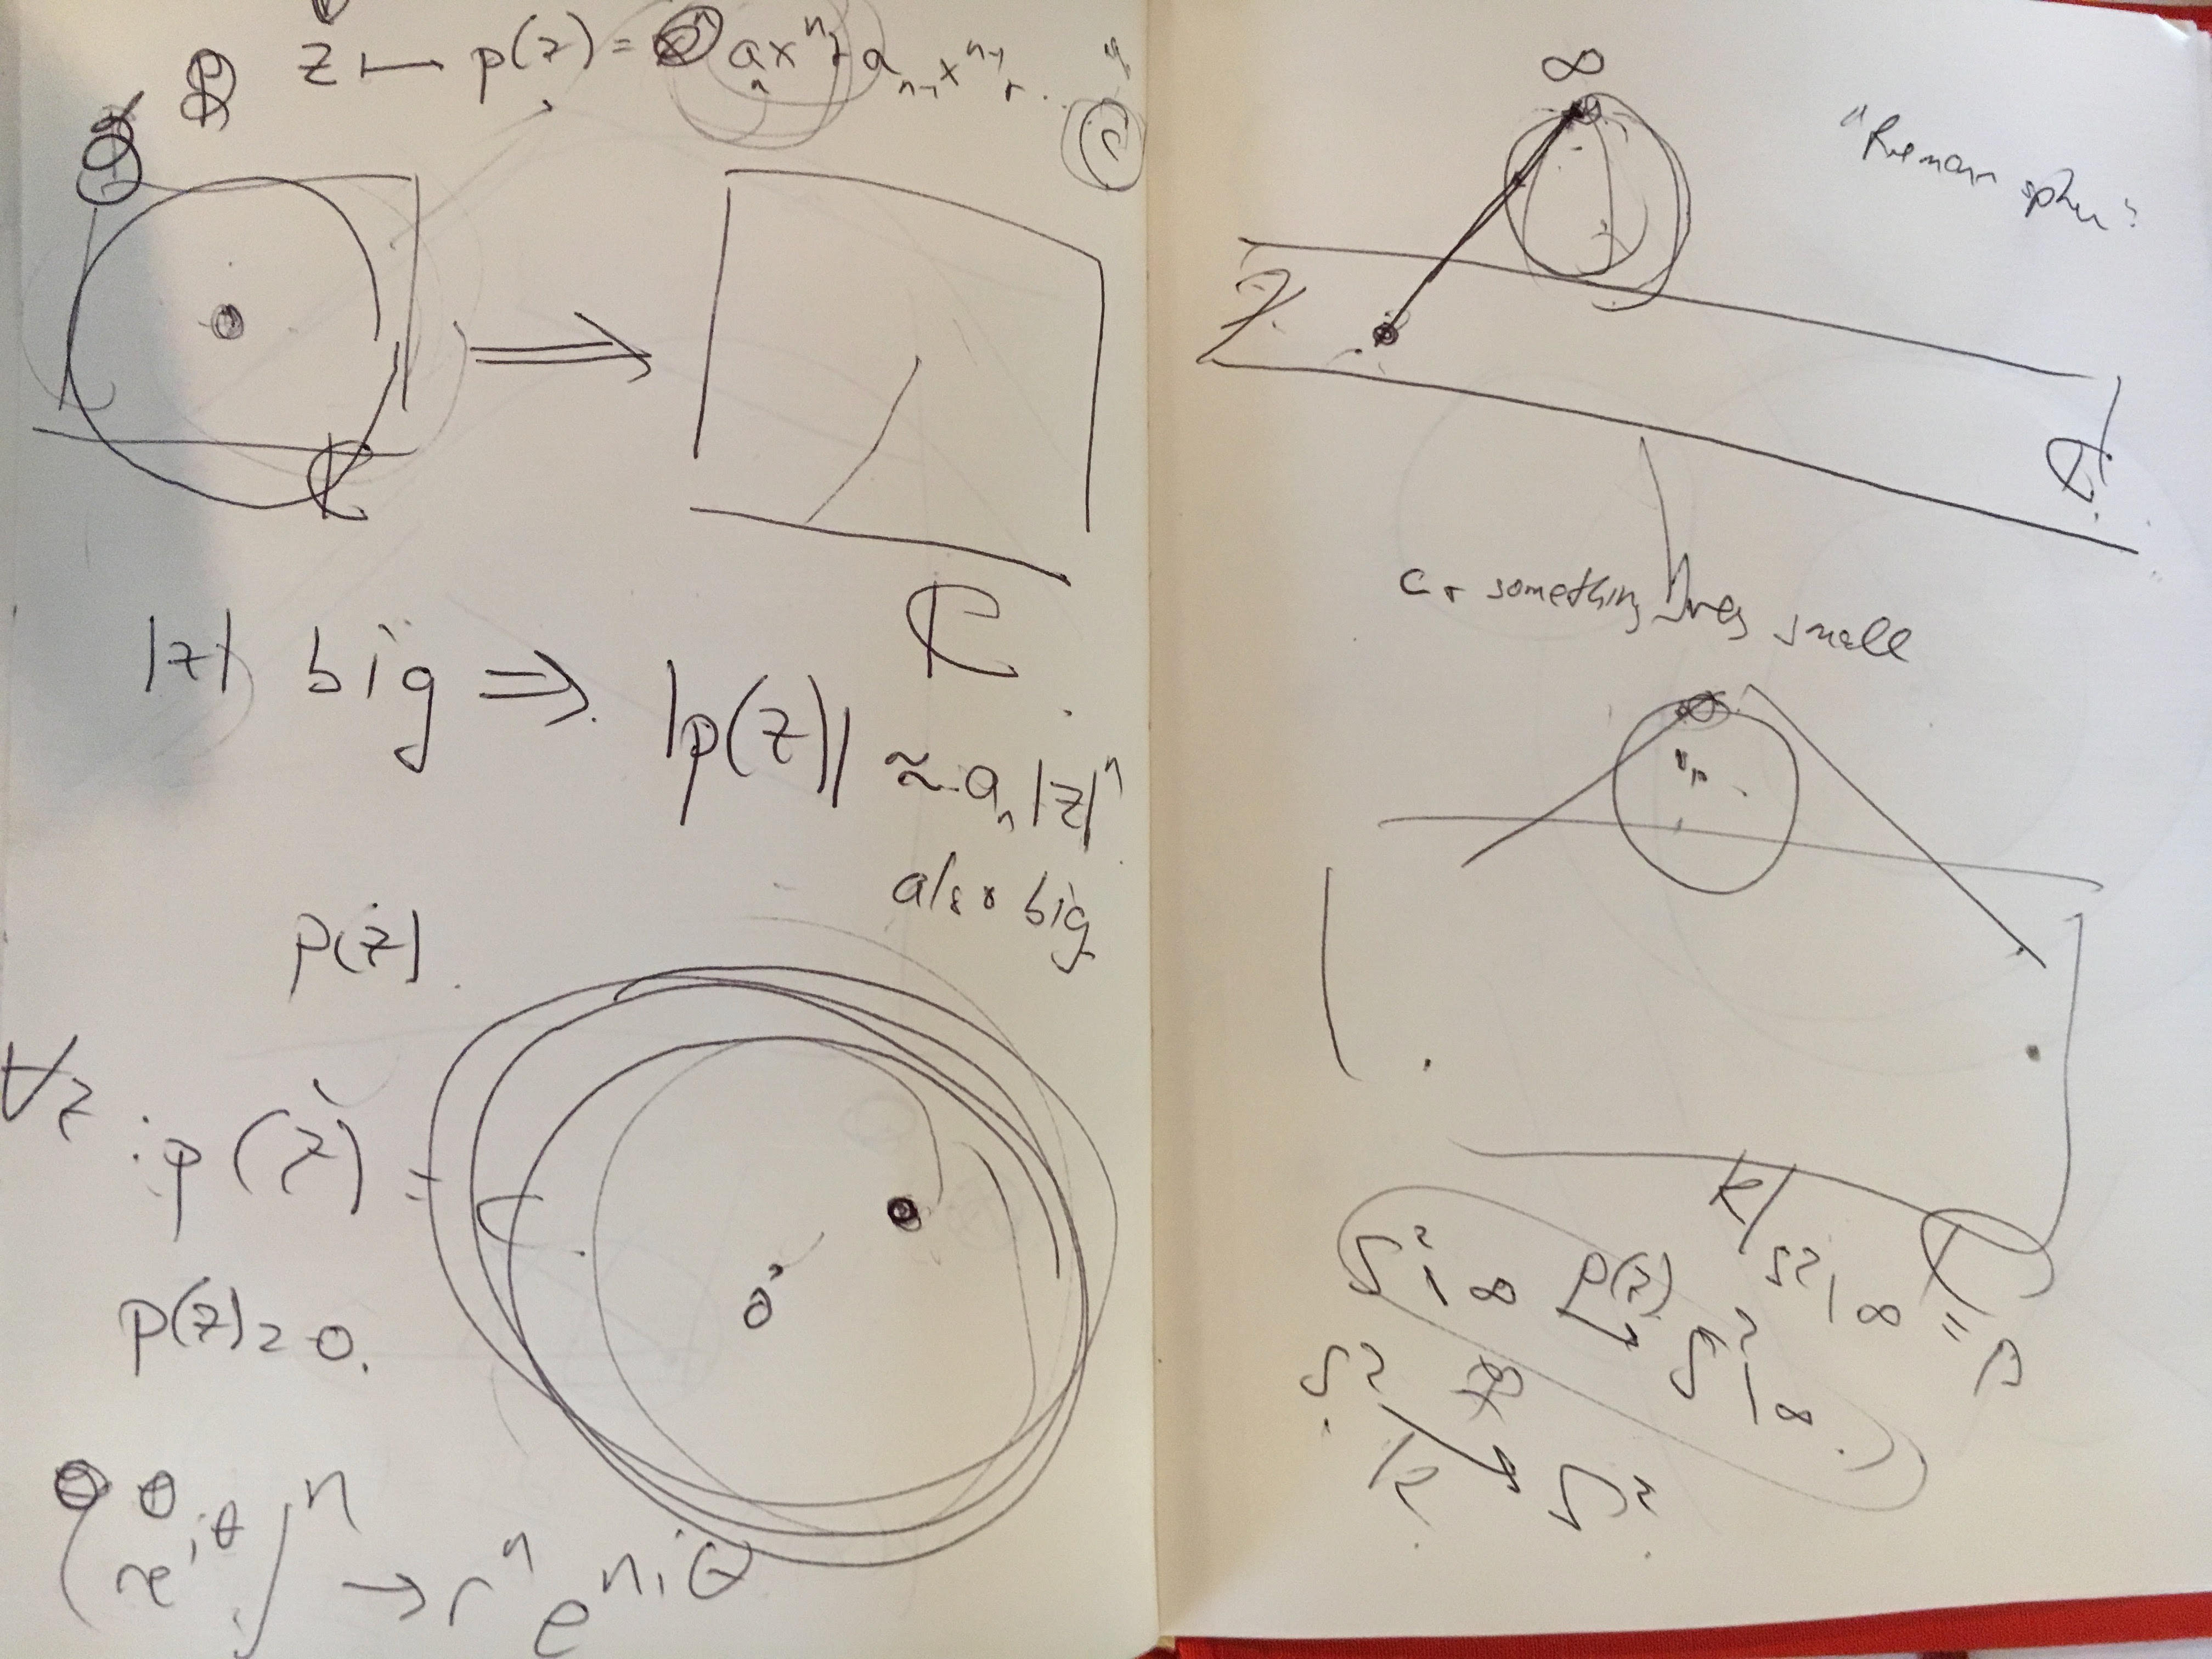 z ⟼ p(z) = a_n x^n + a_{n-1} x^{n-1} + ...
ℂ
ℂ
|z| big ⇒ |p(z)| ≈ a_n |z|^n
also big
p(z)
∀z : p(z) =
0
p(z) = 0.
(re^{iθ})^n → r^n e^{niθ}
∞
"Rieman spher"
z
ℂ
C + something very small
∞
ℂ
S²\∞ p(z) → S²\∞
S² → S²